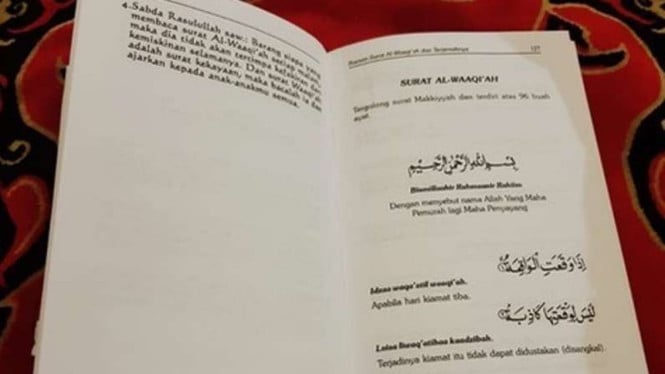 4. Sabda Rasulullah saw.: Barang siapa yang
membaca surat Al-Waaqi'ah setiap malam,
maka dia tidak akan tertimpa kefakiran dan
kemiskinan selamanya. Dan surat Waaqi'ah
adalah surat kekayaan, maka bacalah ia dan
ajarkan kepada anak-anakmu semua.
Surat Al-Waaqi'ah dan Terjemahnya 127
SURAT AL-WAAQI'AH
Tergolong surat Makkiyyah dan terdiri atas 96 buah
ayat.
بِسْمِ اللهِ الرَّحْمٰنِ الرَّحِيْمِ
Bismillaahir Rahmaanir Rahiim
Dengan menyebut nama Allah Yang Maha
Pemurah lagi Maha Penyayang
اِذَا وَقَعَتِ الْوَاقِعَةُ
Idzaa waqa'atil waaqi'ah.
Apabila hari kiamat tiba.
لَيْسَ لِوَقْعَتِهَا كَاذِبَةٌ
Laisa liwaq'atihaa kaadzibah.
Terjadinya kiamat itu tidak dapat didustakan (disangkal).